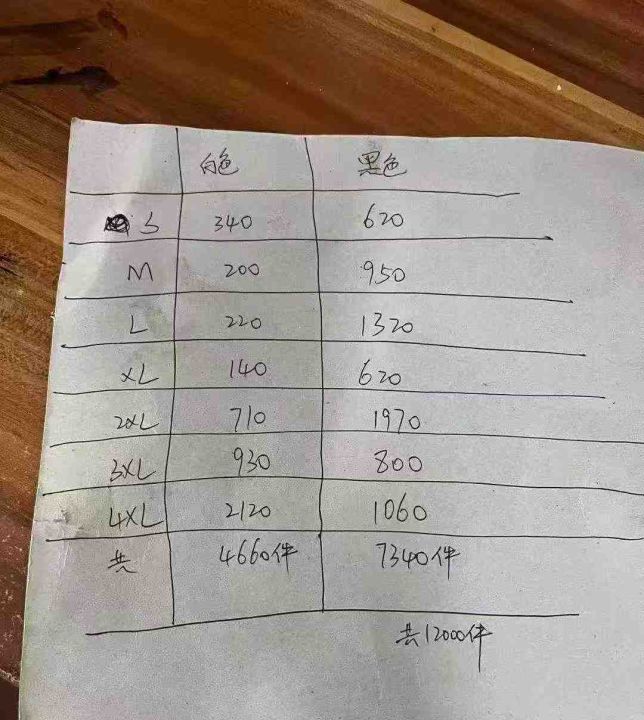 白色 黑色
S 340 620
M 200 950
L 220 1320
XL 140 620
2XL 710 1970
3XL 930 800
4XL 2120 1060
共 4660件 7340件
共12000件